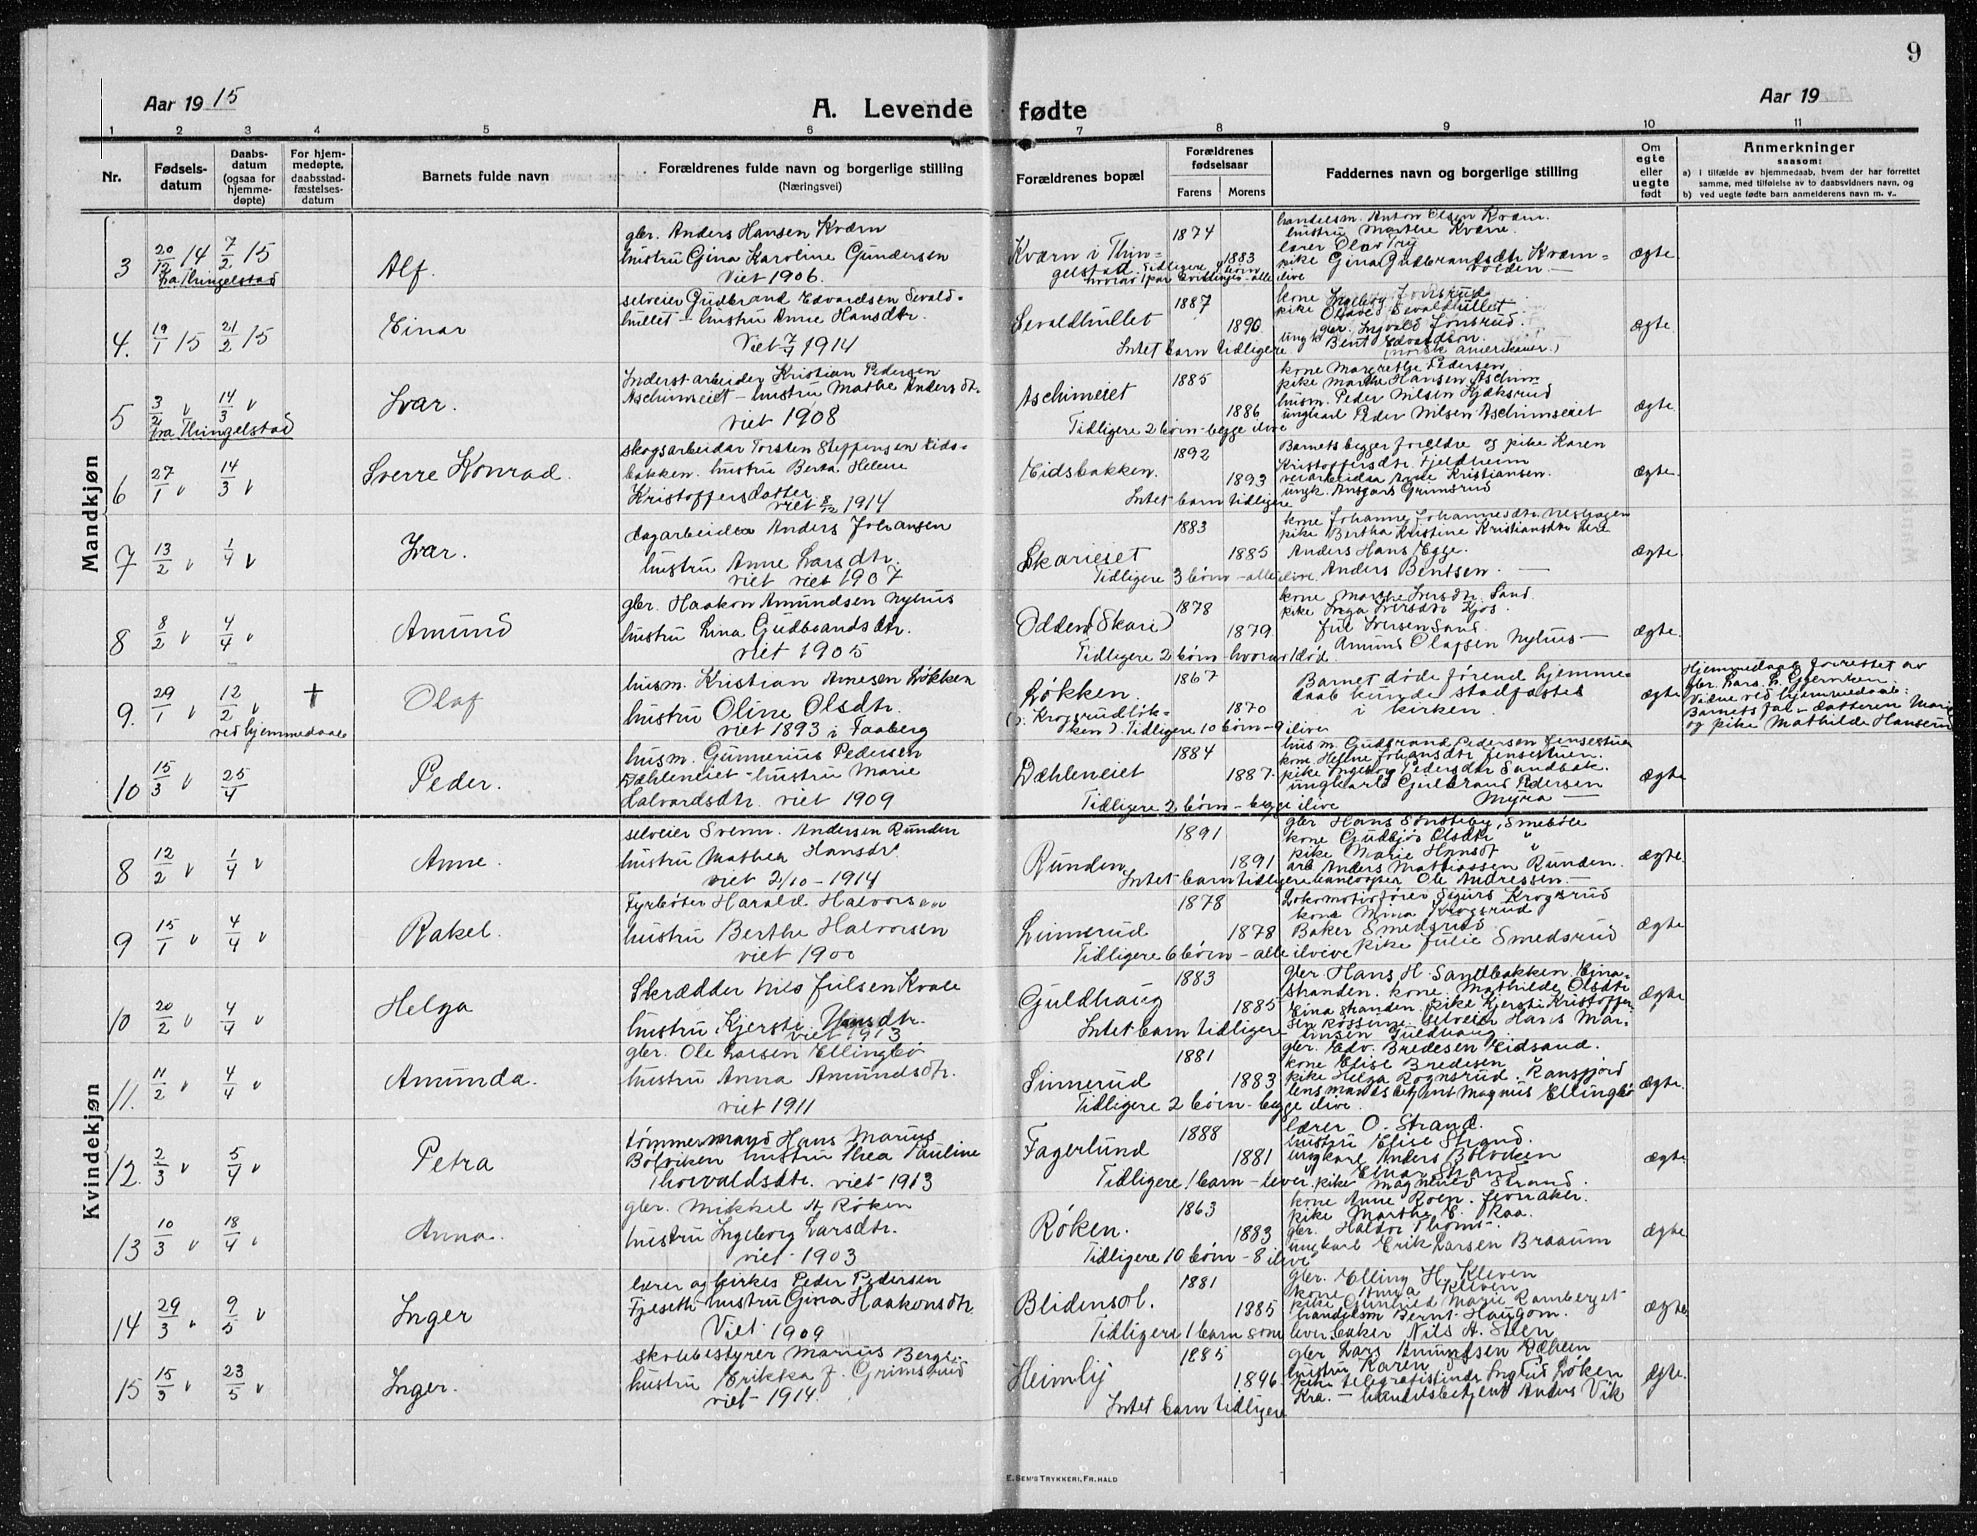 9
Aar 1915
A. Levende fødte
Aar 19
1 2 3 4 5 6 7 8 9 10 11
Nr.
Fødsels-
datum
Daabs-
datum
(ogsaa for
hjemme-
døpte)
For hjem-
medøpte,
daabsstad-
fæstelses-
datum
Barnets fulde navn
Forældrenes fulde navn og borgerlige stilling
(Næringsvei)
Forældrenes bopæl
Forældrenes
fødselsaar
Farens Morens
Faddernes navn og borgerlige stilling
Om
egte
eller
uegte
født
Anmerkninger
saasom:
a) I tilfælde av hjemmedaab, hvem der har forrettet
samme, med tilføielse av to daabsvidners navn, og
b) ved uegte fødte barn anmelderens navn m. v..
Mandkjøn
3 20/12 14 7/2 15
fra Thingelstad
Alf.
gbr. Anders Hansen Kværn
hustru Gina Karoline Gundersen
Viet 1906.
Kværn i Thin-
gelstad. Tidligere børn
hvorav 1 par tvillinger - alle ilive
1874
1883
handelsm. Anton Olsen Kværn.
hustru Marthe Kværn.
lærer Olav Try
pike Gina Gudbrandsdtr Kværn-
volden.
ægte
4. 19/1 15 21/2 15
Einar
selveier Gudbrand Edvardsen Sevald-
hullet - hustru Anne Hansdtr.
Viet 7/4 1914
Sevaldhullet
Intet barn tidligere
1887
1890
kone Ingeborg Jonsrud
pike Olave Sevaldhullet
gbr. Ingvald Jonsrud.
ungk Bent Edvardson.
(norsk amerikaner.)
ægte
5 3/2 v 14/3 v
fra Thingelstad
Ivar.
Inderst-arbeider Kristian Pedersen
Aschimeiet - hustru Mathe Andersdtr.
viet 1908
Aschimeiet
Tidligere 2 børn - begge ilive
1885
1886
kone Margrethe Pedersen
pike Marthe Hansen Aschim
husm. Peder Nilsen Kjøksrud
ungkarl Peder Nilsen Aschimseiet
ægte
6 27/1 v 14/3 v
Sverre Konrad.
skogsarbeider Torsten Steffensen Eids-
bakken. hustru Berta Helene
Kristoffersdatter
viet 8/12 1914
Eidsbakken.
Intet barn tidligere
1892
1893
Barnets begge forældre og pike Karen
Kristoffersdtr. Fjeldheim
veiarbeider Arne Kristiansen.
ungk. Ansgars Grimsrud
ægte.
7 13/2 v 1/4 v
Ivar.
dagarbeider Anders Johansen
hustru Anne Larsdtr.
viet viet 1907
Skarieiet
Tidligere 3 børn - alle ilive.
1883
1885
kone Johanne Johannesdtr. Neshagen
pike Bertha Kristine Kristiansdtr here
Anders Hans Egge.
Anders Bentsen.
ægte.
8 8/2 v 4/4 v
Amund
gbr. Haakon Amundsen Nyhus
hustru Lina Gudbrandsdtr.
viet 1905
Odden (Skari)
Tidligere 2 børn - hvorav 1 død.
1878
1879.
kone Marthe Iversdtr. Sand
pike Inga Iversdtr Kjos.
Jul Iversen Sand.
Amund Olafsen Nyhus
ægte.
9. 29/1 v 12/2 v +
ved hjemmedaab
Olaf
husm. Kristian Arnesen Løkken
hustru Oline Olsdtr.
viet 1893 i Faaberg
Løkken.
(v. Krogsrudløk-
ken). Tidligere 10 børn - 9 ilive
1867
1870
Barnet døde førend hjemme-
daab kunde stadfæstes
i kirken.
ægte
Hjemmedaab forrettet av
gbr. Lars L. Gjernken.
Vidne ved hjemmedaab:
Barnets far - datteren Marie
og pike Mathilde Hansen
10 15/3 v 25/4
Peder.
husm. Gunnerius Pedersen
Dæhleneiet - hustru Marie
Halvardsdtr. viet 1909
Dæhleneiet
Tidligere 2 børn - begge ilive
1884
1887.
husm. Gudbrand Pedersen Jensestuen
kone Helene Johansdtr Jensestuen.
pike Ingeborg Pedersdtr Sandbak.
ungkarl Gulbrand Pedersen
Myra
ægte
Kvindekjøn
8 12/2 v 1/4 v
Anne.
selveier Svenn. Andersen Runden
hustru Mathea Hansdtr.
viet 2/10 - 1914
Runden
Intet barn tidligere
1891
1891
gbr Hans Sønsteby, Smebøle
kone Gudbjør Olsdtr "
pike Marie Hansdt "
arb Anders Mathiassen Runden.
banevogter Ole Andressen
ægte.
9 15/1 v 4/4 v
Rakel.
Fyrbøter Harald Halvorsen
hustru Berthe Halvorsen
viet 1900
Linnerud
Tidligere 6 børn - alle ilvive
1878
1878
Lokomotivfører Sigurd Krogsrud
kone Mina Krogsrud
Baker Smedsrud
pike Julie Smedsrud
ægte
10 20/2 v 4/4 v
Helga
Skrædder Nils Julsen Kvale
hustru Kjersti Hansdtr.
viet 1913
Guldhaug
Intet barn tidligere
1883
1885
gbr Hans H. Sandbakken, Eina-
stranden. kone Mathilde Olsdtr
Eina stranden pike Kjersti Kristoffer
sen Røssene. selveier Hans Mar-
tinsen Guldhaug.
ægte
11. 11/2 v 4/4 v
Amunda.
gbr. Ole Larsen Ellingbø
hustru Anna Amundsdtr.
viet 1911
Linnerud
Tidligere 2 børn - begge ilive.
1881
1883
gbr. Edv. Bredesen Eidsand.
kone Elise Bredesen
pike Helga Rognsrud, Ransfjord
lensmandsbetjent Magnus Ellingbø
ægte.
12. 2/3 v 5/4 v
Petra
tømmermand Hans Marius
Bølviken hustru Thea Pauline
Thorvaldsdtr. viet 1913
Fagerlund
Tidligere 1 barn - lever.
1888
1881
lærer O. Strand.
hustru Elise Strand.
ungkarl Anders Bølviken
Einar Strand
pike Magnhild Strand.
ægte.
13 10/3 v 18/4 v
Anna.
gbr. Mikkel A. Røken
hustru Ingeborg Larsdtr.
viet 1903
Røken.
Tidligere 10 børn - 8 ilive
1863
1883
kone Anne Roen. Jevnaker.
pike Marthe E. Raa.
gbr. Haldor Thoms-
ungkarl Erik Larsen Braaum
ægte
14 29/3 v 9/5 v
Inger
lærer og kirkes. Peder Pedersen
Fjeseth hustru Gina Haakonsdtr.
Viet 1909
Blidensol.
Tidligere 1 barn som lever.
1881
1885
gbr. Elling H. Kleven
kone Anna Kleven
pike Gunhild Marie Ramberget
handelsm Bernt Haugom.
baker Nils A. Steen
ægte
15 15/3 v 23/5 v
Inger.
skolebestyrer Marius Berge.
hustru Erikka J. Grimsrud
viet 1914.
Heimly
Intet barn tidligere
1885
1896.
gbr Lars Amundsen Dæhlen
hustru Karen
pike telegrafistinde Ingrid Løken
Kra. - handelsbetjent Anders Vik
ægte.
E. SEM'S TRYKKERI, FR.HALD